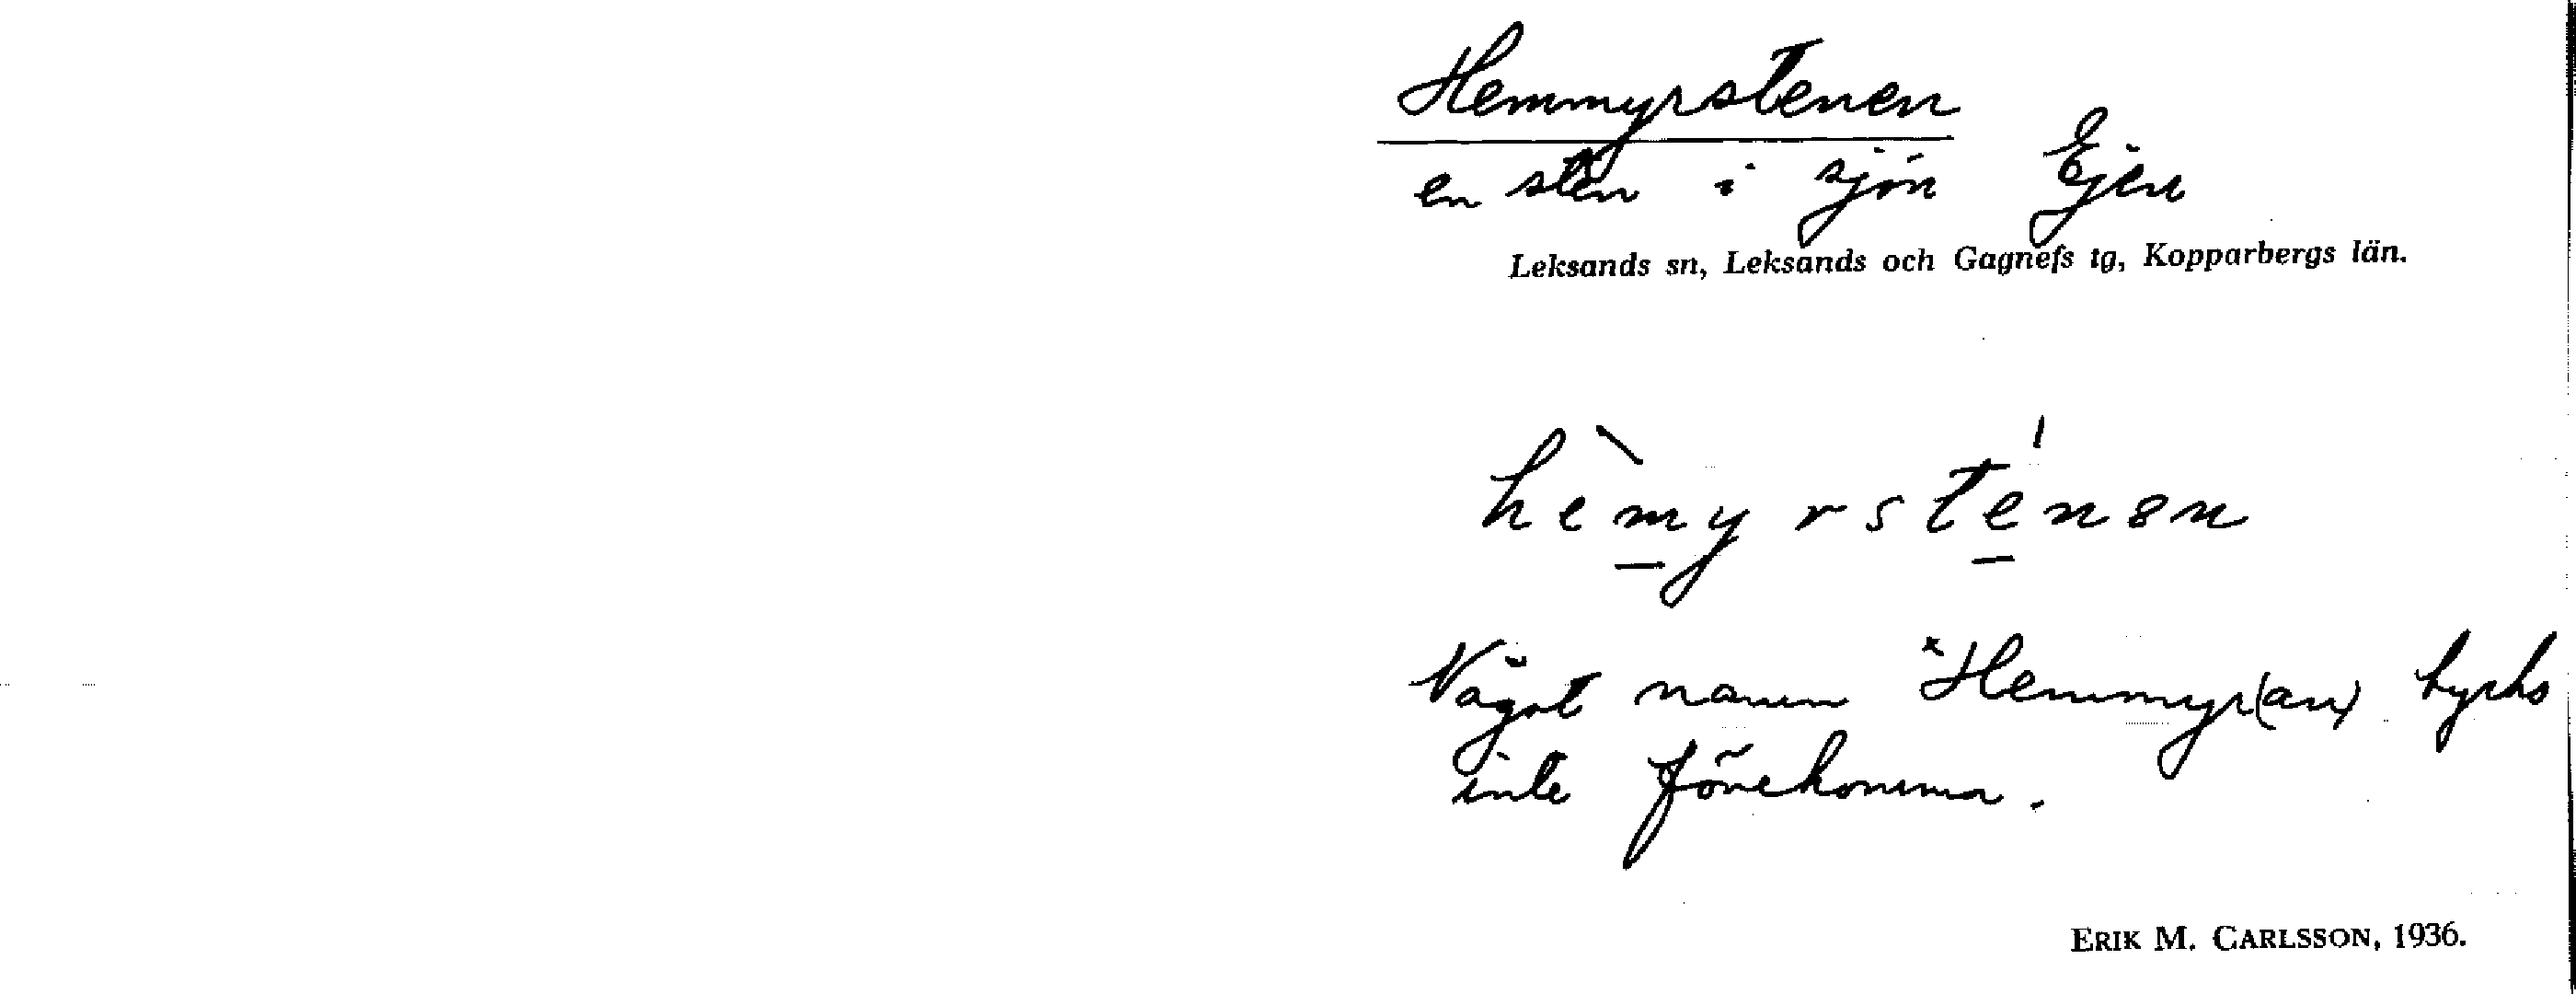 Hemmyrstenen
en sten i sjön Ejen
Leksands sn, Leksands och Gagnefs tg, Kopparbergs län.
hèmyrsténən
Något namn *Hemmyr(an) tycks
inte förekomma.
ERIK M. CARLSSON, 1936.